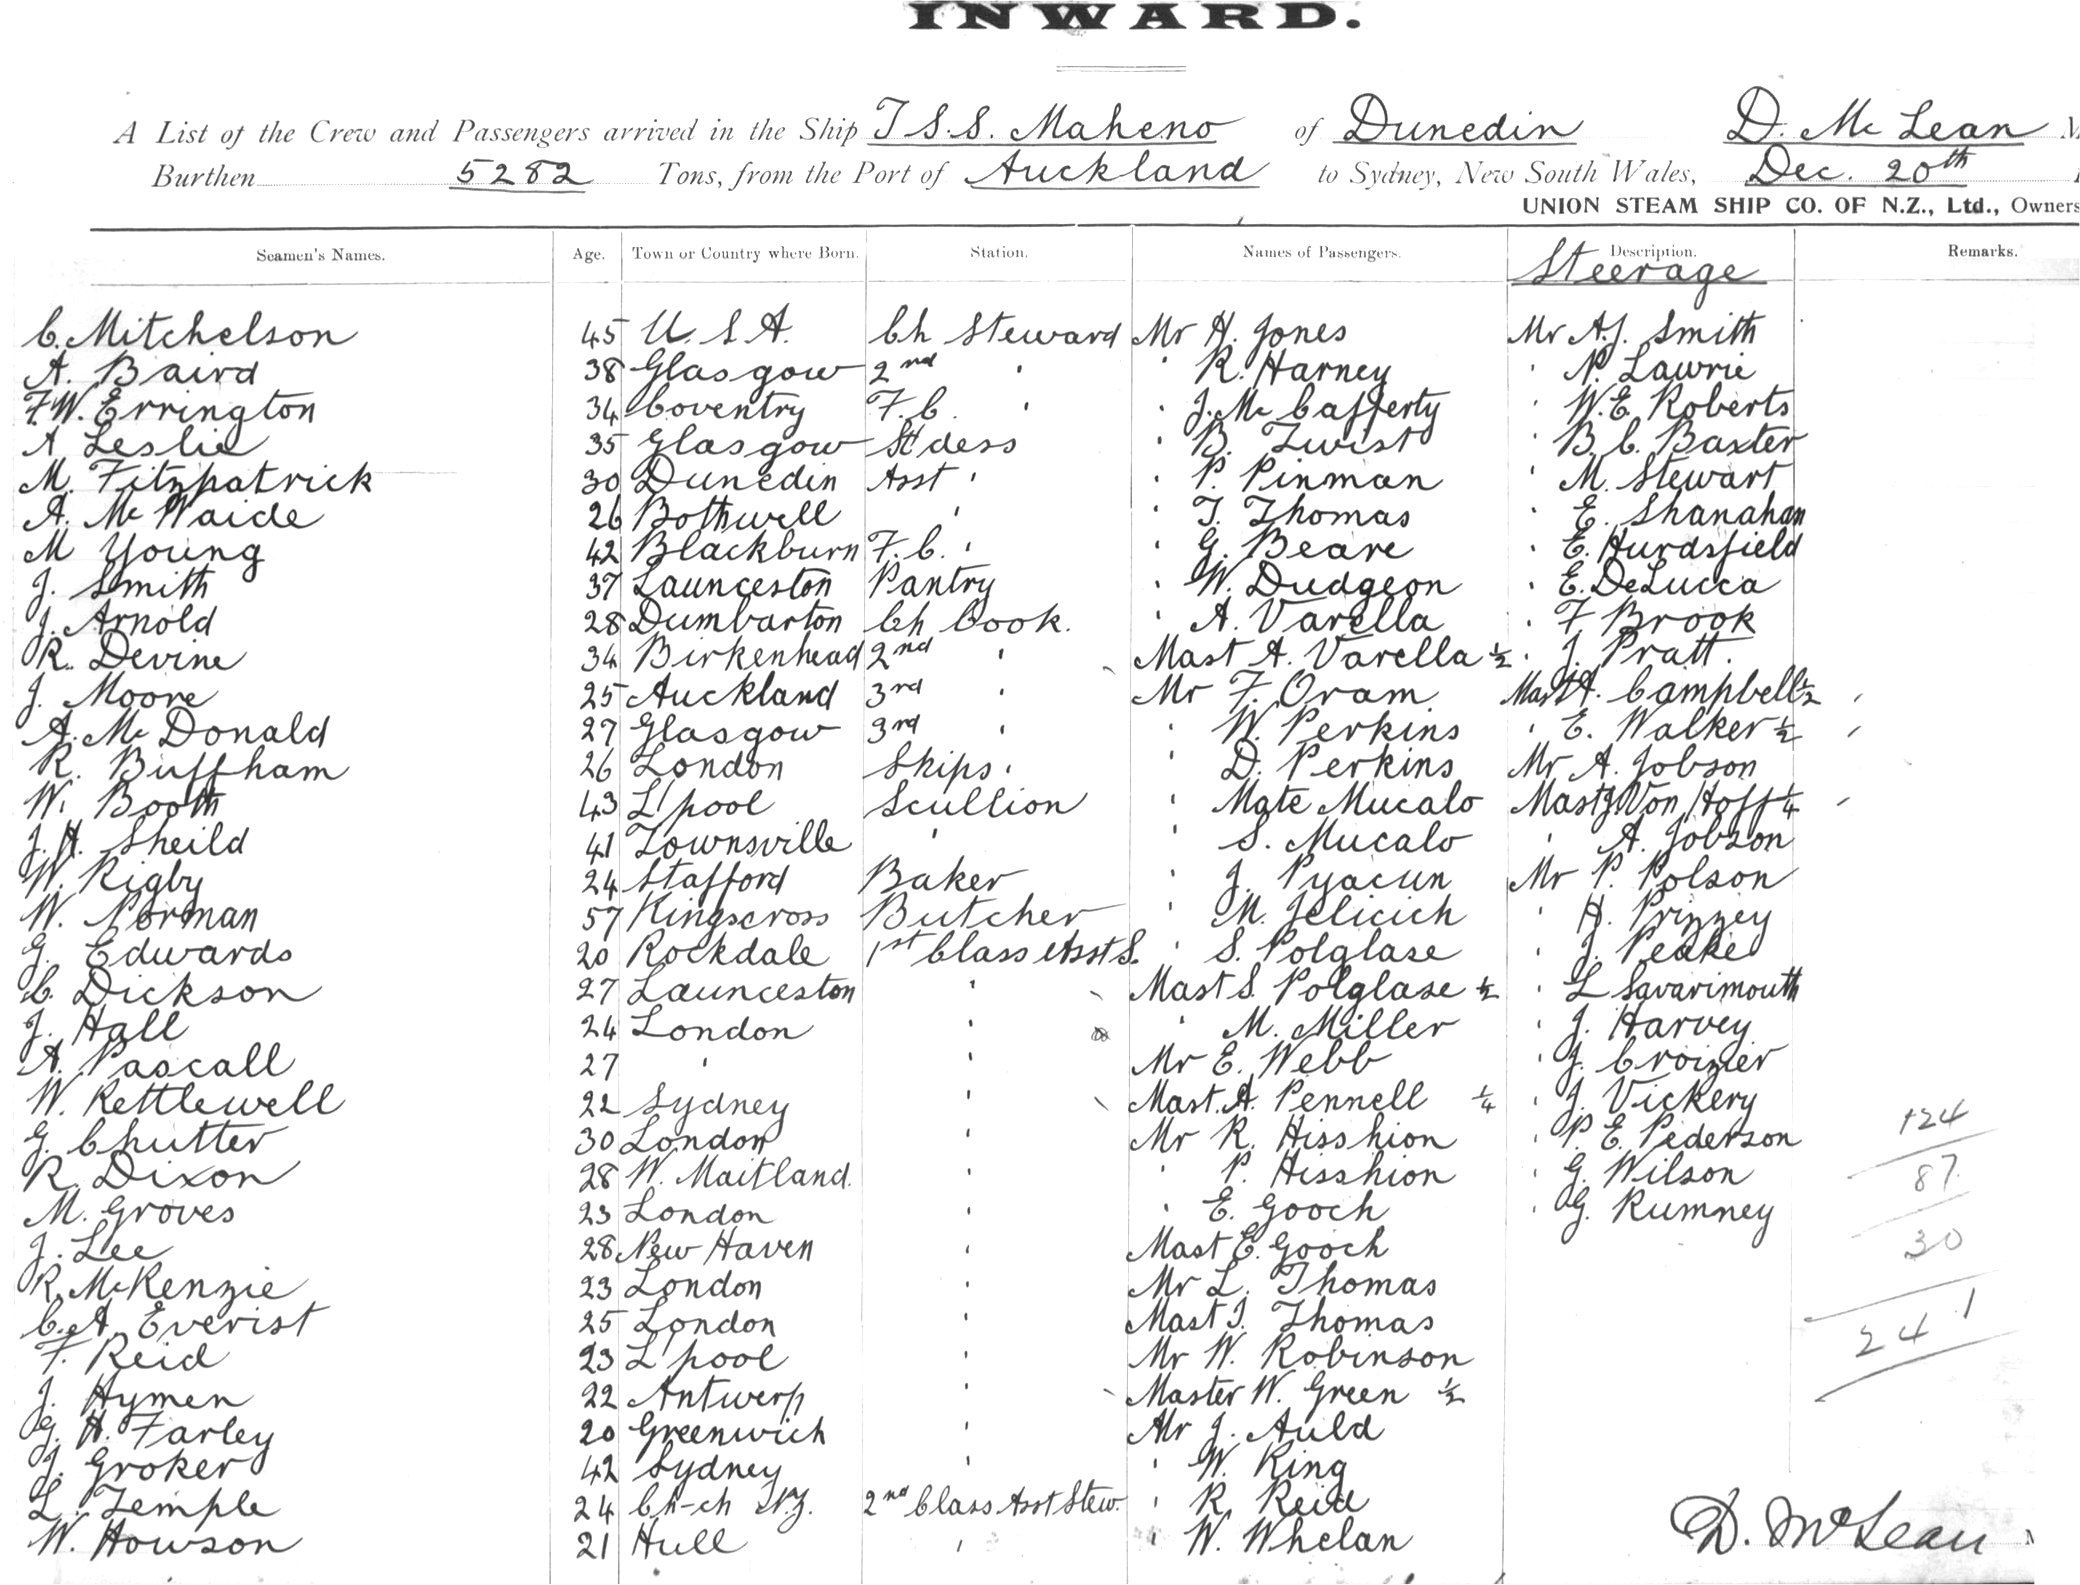 INWARD.
A List of the Crew and Passengers arrived in the Ship T.S.S. Maheno of Dunedin D. Mc Lean
Burthen 5282 Tons, from the Port of Auckland to Sydney, New South Wales, Dec. 20th
UNION STEAM SHIP CO. OF N.Z., Ltd., Owners
Seamen's Names. Age. Town or Country where Born. Station. Names of Passengers. Description. Remarks.
Steerage
C. Mitchelson 45 U.S.A. Ch Steward Mr H. Jones Mr A.J. Smith
A. Baird 38 Glasgow 2nd " " R. Harney " N. Lawrie
F.W. Errington 34 Coventry F.C. " " J. Mc Cafferty " W.E. Roberts
A Leslie 35 Glasgow St'dess " B. Twist " B.C. Baxter
M. Fitzpatrick 30 Dunedin Asst " " P. Pinman " M. Stewart
A. Mc Waide 26 Bothwell " " T. Thomas " E. Shanahan
M Young 42 Blackburn F.C. " " G. Beare " E. Hurdsfield
J. Smith 37 Launceston Pantry " W. Dudgeon " E. DeLucca
J. Arnold 28 Dumbarton Ch Cook. " A. Varella " F Brook
R. Devine 34 Birkenhead 2nd " Mast A. Varella ½ " J. Pratt.
J. Moore 25 Auckland 3rd " Mr F. Oram Mast A. Campbell ½
A. Mc Donald 27 Glasgow 3rd " " W. Perkins " E. Walker ½
R. Buffham 26 London Ships " " D. Perkins Mr A. Jobson
W. Booth 43 L'pool Scullion " Mate Mucalo Mast J. Von Hoff ¼
J. H. Sheild 41 Townsville " " S. Mucalo " A. Jobson
W. Rigby 24 Stafford Baker " J. Pyacun Mr P. Polson
W. Norman 57 Kingscross Butcher " M. Jelicich " H. Prizzey
G. Edwards 20 Rockdale 1st Class Asst S. " S. Polglase " J. Peake
C. Dickson 27 Launceston " Mast S. Polglase ½ " L Savarimouth
J. Hall 24 London " " M. Miller " J. Harvey
A. Pascall 27 " " Mr E. Webb " J. Croizier
W. Kettlewell 22 Sydney " Mast. A. Pennell ¼ " J. Vickery
G. Chutter 30 London " Mr R. Hisshion " P. E. Pederson 124
R. Dixon 28 W. Maitland. " " P. Hisshion " G. Wilson 87
M. Groves 23 London " " E. Gooch " G. Rumney
J. Lee 28 New Haven " Mast E. Gooch 30
R. McKenzie 23 London " Mr L. Thomas
C. A. Everist 25 London " Mast J. Thomas 241
F. Reid 23 L'pool " Mr W. Robinson
J. Hymen 22 Antwerp " Master W. Green ½
G. H. Farley 20 Greenwich " Mr J. Auld
J. Groker 42 Sydney " " W. King
L. Temple 24 Ch-ch N.Z. 2nd Class Asst Stew. " R. Reid
W. Howson 21 Hull " " W. Whelan
D. McLean